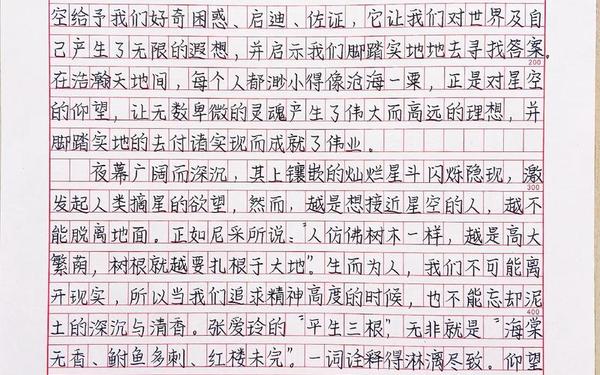 空给予我们好奇困惑、启迪、佐证，它让我们对世界及自
己产生了无限的遐想，并启示我们脚踏实地地去寻找答案。
200
在浩瀚天地间，每个人都渺小得像沧海一粟，正是对星空
的仰望，让无数卑微的灵魂产生了伟大而高远的理想，并
脚踏实地的去付诸实现而成就了伟业。
夜幕广阔而深沉，其上镶嵌的灿烂星斗闪烁隐现，激
300
发起人类摘星的欲望，然而，越是想接近星空的人，越不
能脱离地面。正如尼采所说：“人仿佛树木一样，越是高大
繁荫，树根就越要扎根于大地”。生而为人，我们不可能离
开现实，所以当我们追求精神高度的时候，也不能忘却泥
400
土的深沉与清香。张爱玲的“平生三根”，无非就是“海棠
无香、鲥鱼多刺、红楼未完”。一词诠释得淋漓尽致。仰望